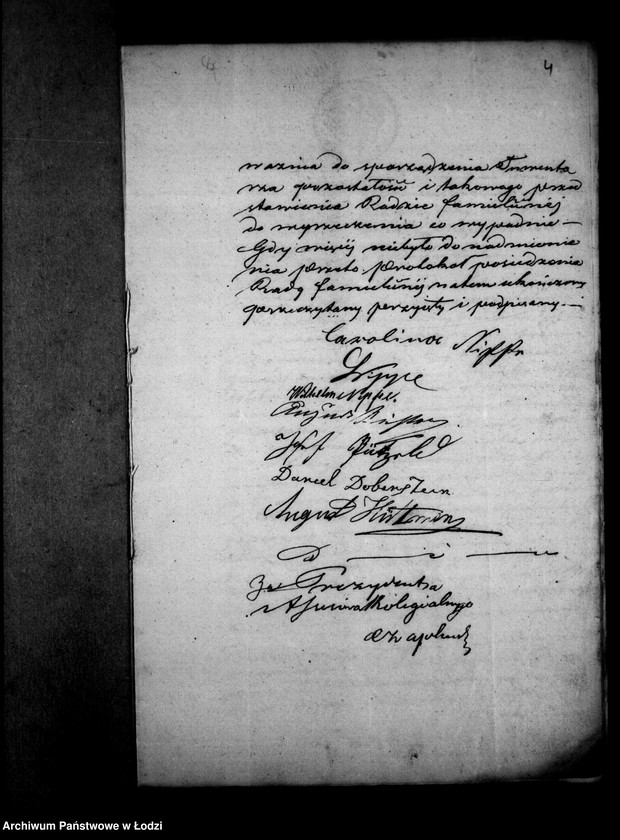 4
waznia do sporządzenia Inwenta
rza pozostałości i takowego przed
stawienia Radzie familijnej
do wyrzeczenia co wypadnie —
Gdy więcej niebyło do nadmienie
nia przeto Protokół posiedzenia
Rady familijnej na tem ukończony
przeczytany przyięty i podpisany. —
Carolina Nippe
Nippe
Wilhelm Nippe.
August
Josef
Daniel Dobenstein
August
Za Prezydenta
Assesora Kolegialnego
Archiwum Państwowe w Łodzi